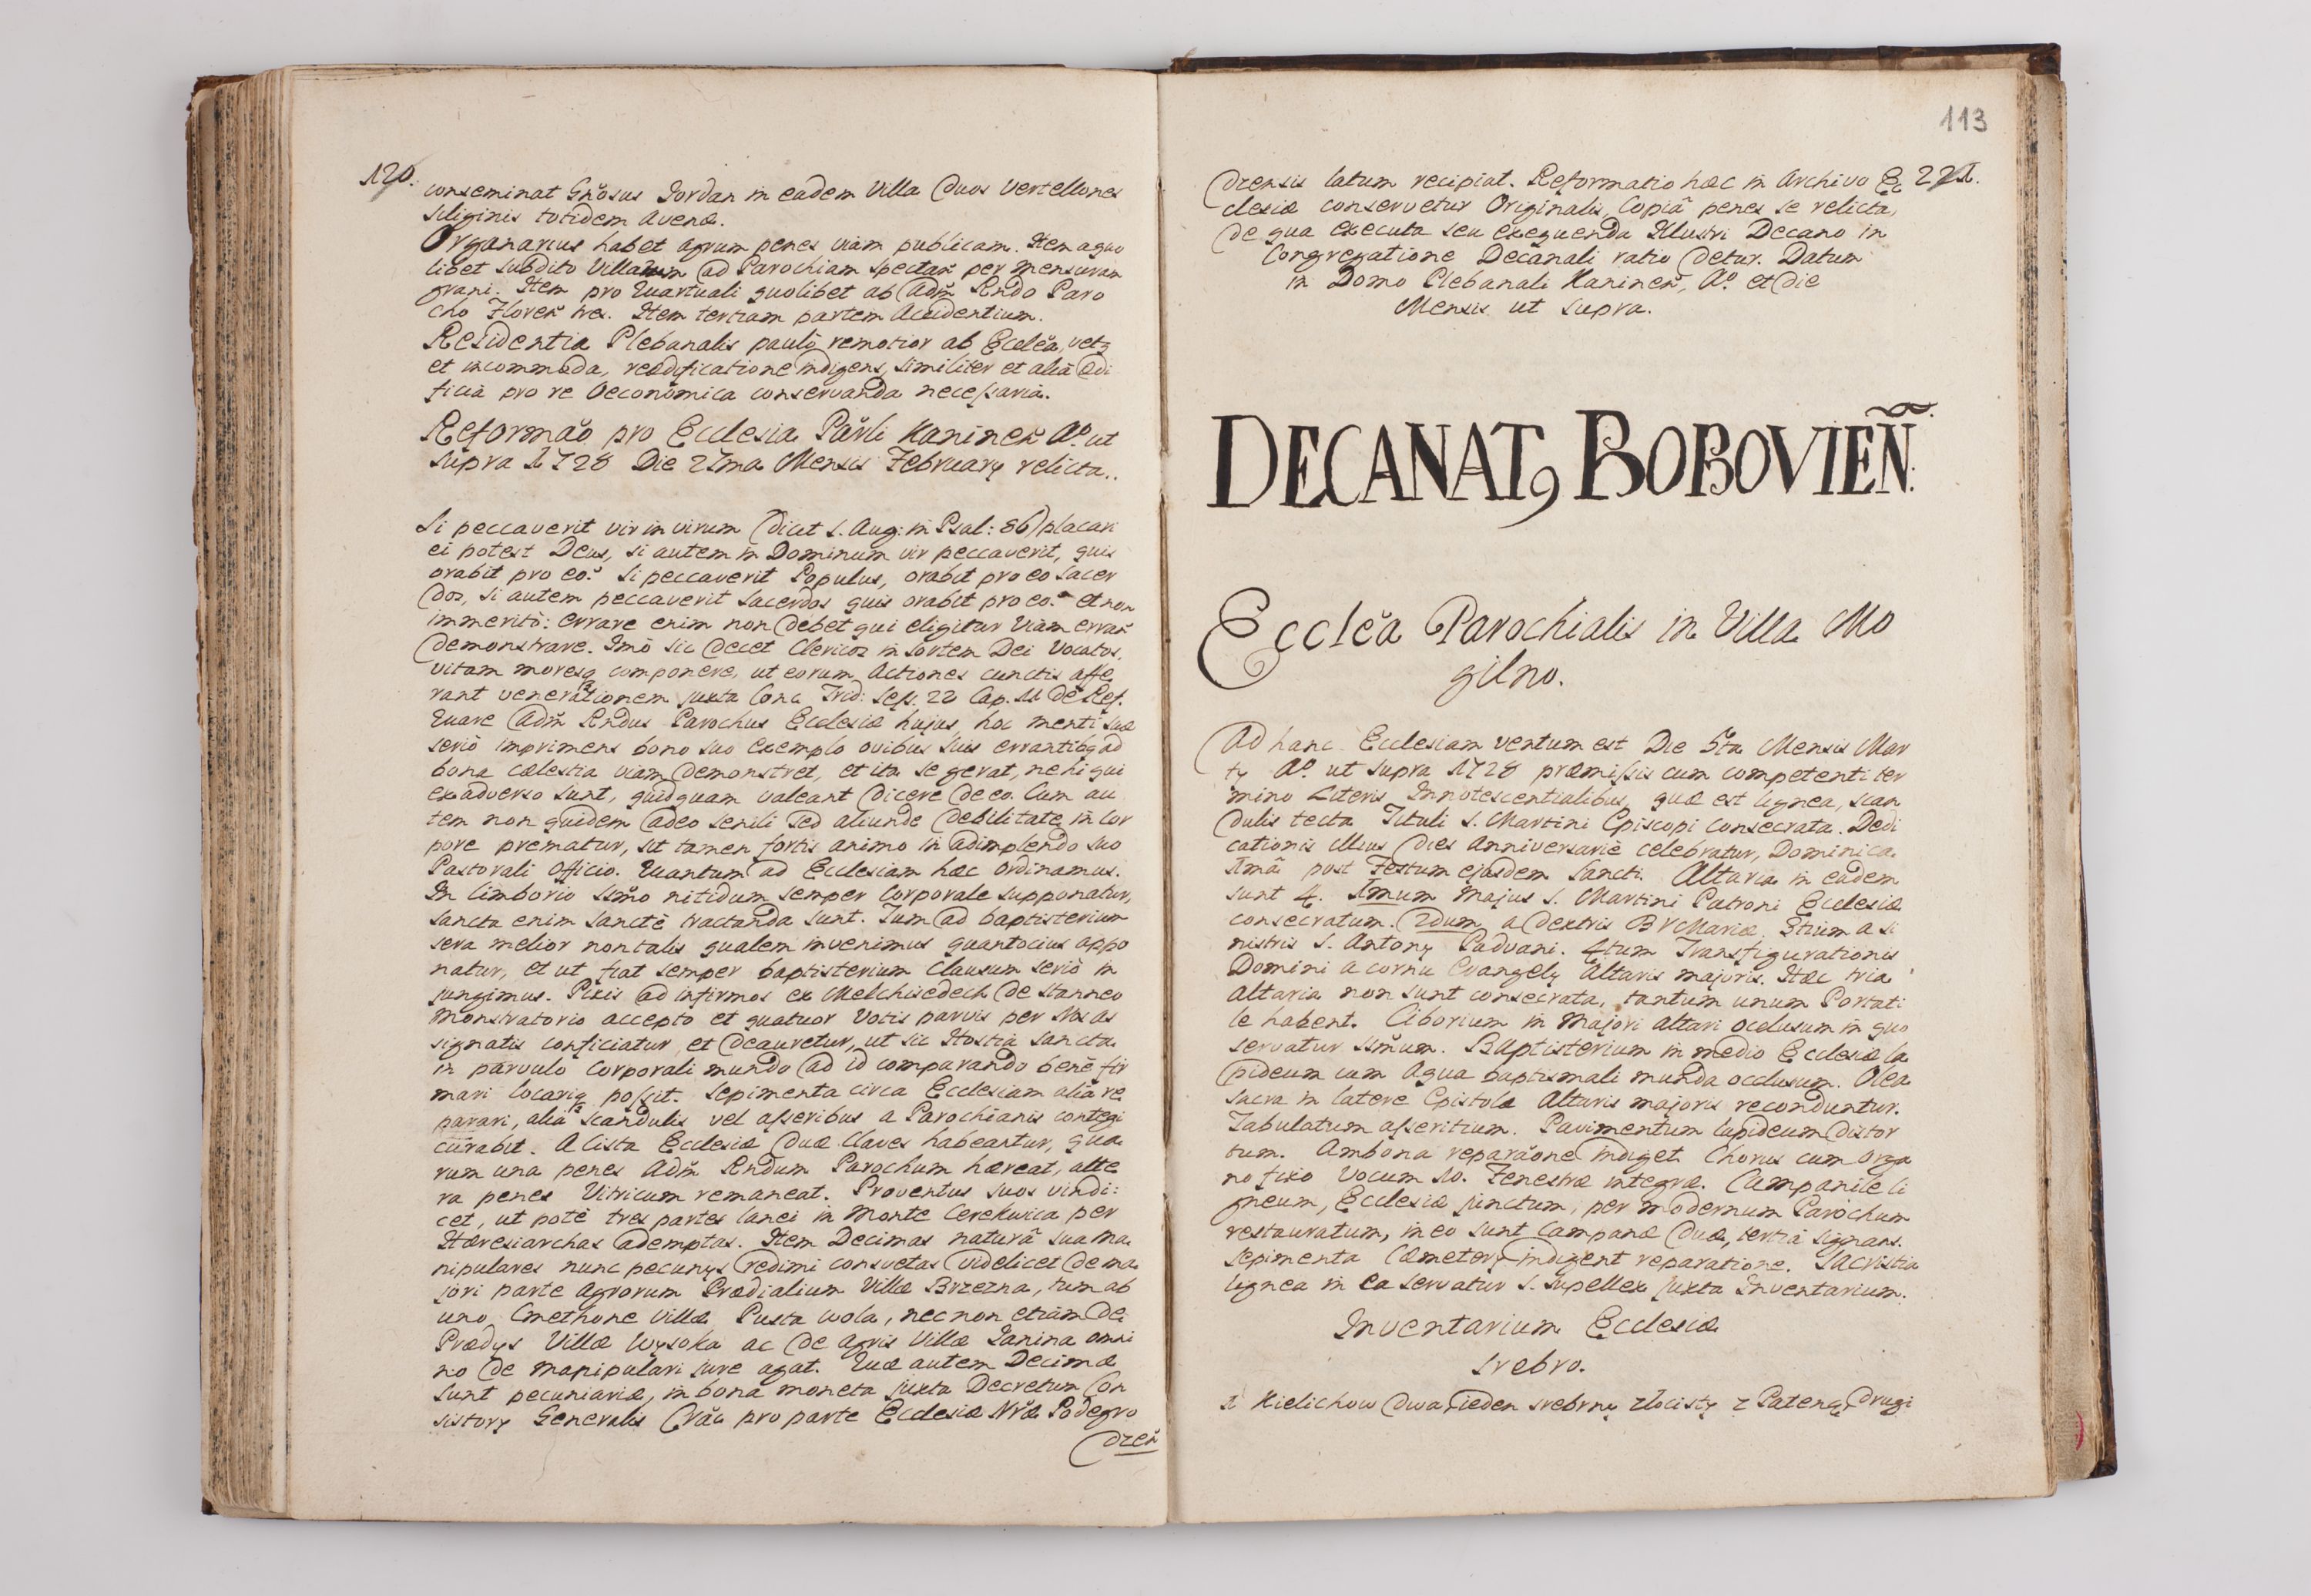 120.
conseminat Gnõsus Jordan in eadem Villa duos Vertellones
siliginis totidem avenæ.
Organarius habet agrum penes viam publicam. Item a quo
libet subdito Villarum ad Parochiam spectañ per mensuram
grani. Item pro Quartuali quolibet ab Adm̃ Rndo Paro
cho Floreñ tres. Item tertiam partem Accidentium.
Residentia Plebanalis paulò remotior ab Ecclẽa, vetq
et incommoda, reædificatione indigens, similiter et alia ædi
ficia pro re Oeconomica conservanda necessaria.
Reformaõ pro Ecclesia Parõli Kanineñ Aº ut
supra 1728 Die 21ma Mensis February relicta..
Si peccaverit vir in virum (dicit S. Aug: in Psal: 86) placari
ei potest Deus, si autem in Dominum vir peccaverit, quis
orabit pro eo? Si peccaverit Populus, orabit pro eo Sacer
dos, si autem peccaverit sacerdos quis orabit pro eo? et non
immeritò: errare enim non debet qui eligitur viam errañ
demonstrare. Imò sic decet Clericos in sortem Dei vocatos,
vitam moresq componere, ut eorum Actiones cunctis affe
rant venerationem juxta Conc. Trid: Sess. 22 Cap. 11 de Ref.
Quare Adm̃ Rndus Parochus Ecclesiæ hujus hoc menti suæ
seriò imprimens bono suo exemplo ovibus suis errantibq ad
bona cælestia viam demonstret, et ita se gerat, ne hi qui
ex adverso sunt, quidquam valeant dicere de eo. Cum au
tem non quidem adeo senili sed aliunde debilitate in cor
pore prematur, sit tamen fortis animo in adimplendo suo
Pastorali Officio. Quantum ad Ecclesiam hæc ordinamus.
In Cimborio ssm̃o nitidum semper Corporale supponatur,
sancta enim sanctè tractanda sunt. Tum ad baptisterium
sera melior non talis qualem invenimus quantocius appo
natur, et ut fiat semper baptisterium clausum seriò in
jungimus. Pixis ad infirmos ex Melchisedech de stanneo
monstratorio accepto et quatuor Votis parvis per Nos as
signatis conficiatur et deauretur, ut sic Hostia Sancta
in parvulo Corporali mundo ad id comparando benè fir
mari locariq possit. Sepimenta circa Ecclesiam alia re
parari, alia scandulis vel asseribus a Parochianis contegi
curabit. A Cista Ecclesiæ duæ claves habeantur, qua
rum una penes Adm̃ Rndum Parochum hæreat, alte
ra penes Vitricum remaneat. Proventus suos vindi:
cet, ut potè tres partes lanei in Monte Cerekwica per
Hæresiarchas ademptas. Item Decimas naturâ sua ma
nipulares nunc pecunijs redimi consvetas videlicet de ma
jori parte agrorum Prædialium Villæ Brzezna, tum ab
uno Cmethone Villæ Pusta wola, nec non etiam de
Prædijs Villæ Wysoka ac de agris Villæ Janina omni
no de manipulari jure agat. Quæ autem Decimæ
sunt pecuniariæ, in bona moneta juxta Decretum Con
sistory Generalis Crãc pro parte Ecclesiæ Nr̃æ Podegro
dzeñ
113
221.
dzensis latum recipiat. Reformatio hæc in Archivo Ec
clesiæ conservetur Originalis, Copiâ penes se relicta,
de qua executa seu exequenda Illustri Decano in
Congregatione Decanali ratio detur. Datum
in Domo Plebanali Kanineñ, Aº et die
Mensis ut supra.
DECANATꝰ BOBOVIEÑ.
Ecclẽa Parochialis in Villa Mo
gilno.
Ad hanc Ecclesiam ventum est Die 5ta Mensis Mar
ty Aº ut supra 1728 præmissis cum competenti ter
mino Literis Innotescentialibus, quæ est lignea, scan
dulis tecta Tituli S. Martini Episcopi consecrata. Dedi
cationis illius dies Anniversariè celebratur, Dominica
1mâ post Festum ejusdem Sancti. Altaria in eadem
sunt 4. 1mum Majus S. Martini Patroni Ecclesiæ
consecratum. 2dum a dextris BVMariæ. 3tium a si
nistris S. Antony Paduani. 4tum Transfigurationis
Domini a cornu Evangely Altaris majoris. Hæc tria
altaria non sunt consecrata, tantum unum Portati
le habent. Ciborium in Majori altari occlusum in quo
servatur ssm̃um. Baptisterium in medio Ecclesiæ la
pideum cum Aqua baptismali munda occlusum. Olea
sacra in latere Epistolæ Altaris majoris reconduntur.
Tabulatum asseritium. Pavimentum lapideum distor
tum. Ambona reparãone indiget. Chorus cum orga
no fixo vocum 10. Fenestræ integræ. Campanile li
gneum, Ecclesiæ junctum, per modernum Parochum
restauratum, in eo sunt Campanæ duæ, tertia signans.
Sepimenta Cæmetery indigent reparatione. Sacristia
lignea in ea servatur S. supellex juxta Inventarium.
Inventarium Ecclesiæ
Srebro.
1 Kielichow dwa, ieden srebrny złocisty z Pateną, drugi